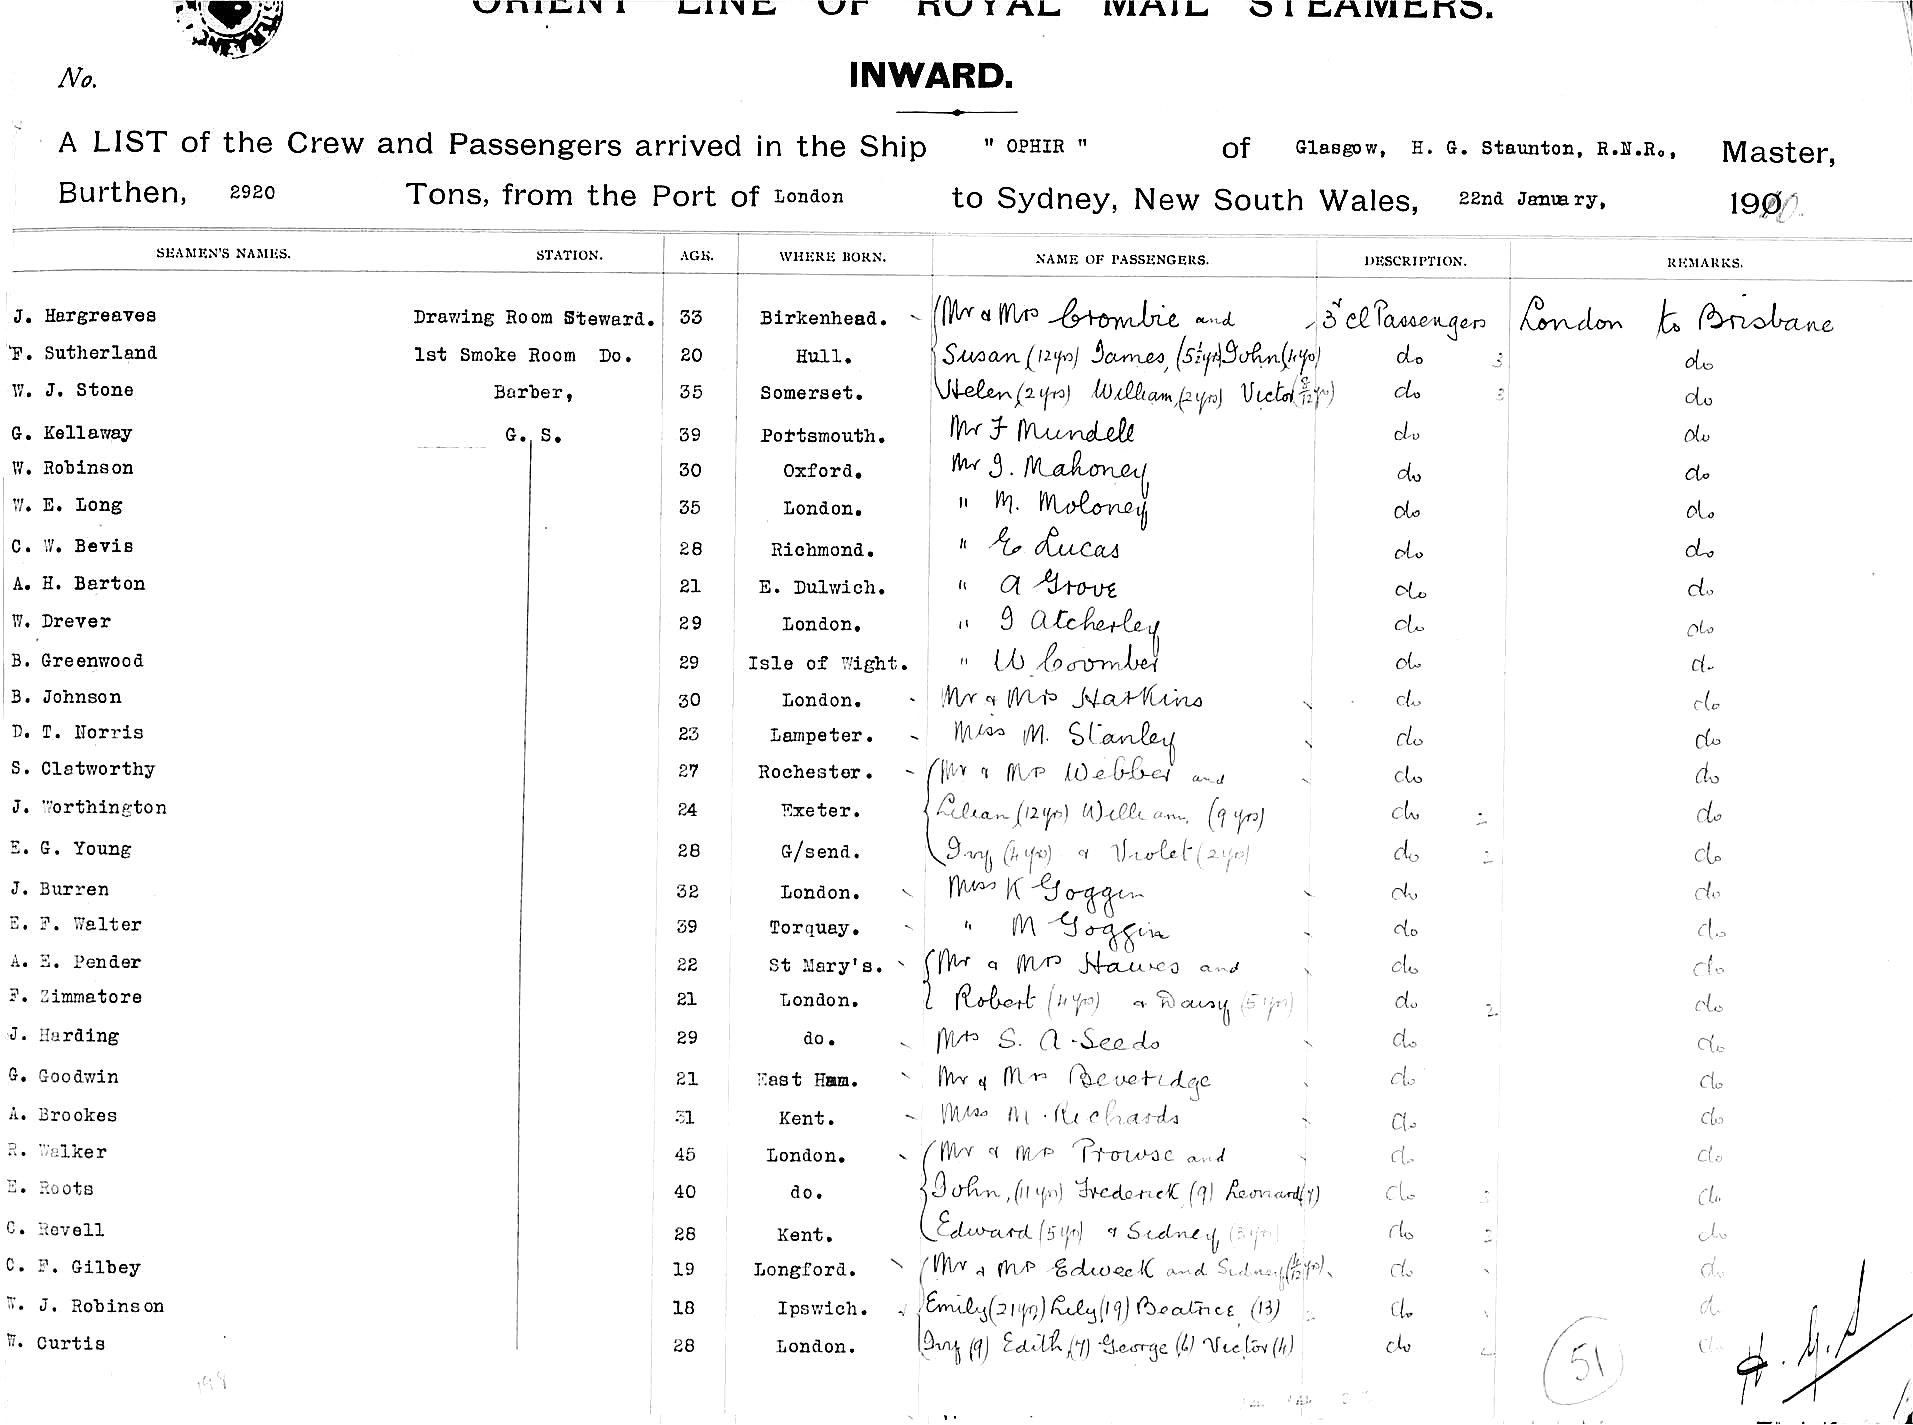 ORIENT LINE OF ROYAL MAIL STEAMERS.
No.
INWARD.
A LIST of the Crew and Passengers arrived in the Ship " OPHIR " of Glasgow, H. G. Staunton, R.N.R., Master,
Burthen, 2920 Tons, from the Port of London to Sydney, New South Wales, 22nd January, 1910.
SEAMEN'S NAMES. STATION. AGE. WHERE BORN. NAME OF PASSENGERS. DESCRIPTION. REMARKS.
J. Hargreaves Drawing Room Steward. 33 Birkenhead. Mr & Mrs Crombie and 3rd cl Passengers London to Brisbane
F. Sutherland 1st Smoke Room Do. 20 Hull. Susan (12yrs) James, (5½yrs) John (4yrs) do 3 do
W. J. Stone Barber, 35 Somerset. Helen (2yrs) William, (2yrs) Victor do 3 do
G. Kellaway G. S. 39 Portsmouth. Mr F Mundell do do
W. Robinson 30 Oxford. Mr J. Mahoney do do
W. E. Long 35 London. " M. Moloney do do
C. W. Bevis 28 Richmond. " E. Lucas do do
A. H. Barton 21 E. Dulwich. " A Grove do do
W. Drever 29 London. " J Atcherley do do
B. Greenwood 29 Isle of Wight. " W Coomber do do
B. Johnson 30 London. Mr & Mrs Harkins do do
D. T. Norris 23 Lampeter. Miss M. Stanley do do
S. Clatworthy 27 Rochester. Mr & Mrs Webber and do do
J. Worthington 24 Exeter. Lilian (12yrs) William, (9yrs) do 2 do
E. G. Young 28 G/send. Ivy (4yrs) & Violet (2yrs) do 2 do
J. Burren 32 London. Miss K Goggin do do
E. F. Walter 39 Torquay. " M Goggin do do
A. E. Pender 22 St Mary's. Mr & Mrs Hawes and do do
F. Zimmatore 21 London. Robert (4yrs) & Daisy (5yrs) do 2 do
J. Harding 29 do. Mrs S. A. Seeds do do
G. Goodwin 21 East Ham. Mr & Mrs Beveridge do do
A. Brookes 31 Kent. Miss M. Richards do do
R. Walker 45 London. Mr & Mrs Prowse and do do
E. Roots 40 do. John, (11yrs) Frederick (9) Leonard (7) do 3 do
C. Revell 28 Kent. Edward (5yrs) & Sidney (3yrs) do 2 do
C. F. Gilbey 19 Longford. Mr & Mrs Edweck and Sidney do do
W. J. Robinson 18 Ipswich. Emily (21yrs) Lily (19) Beatrice (13) do do
W. Curtis 28 London. Ivy (9) Edith (7) George (6) Victor (4) do do
51
H. G. S